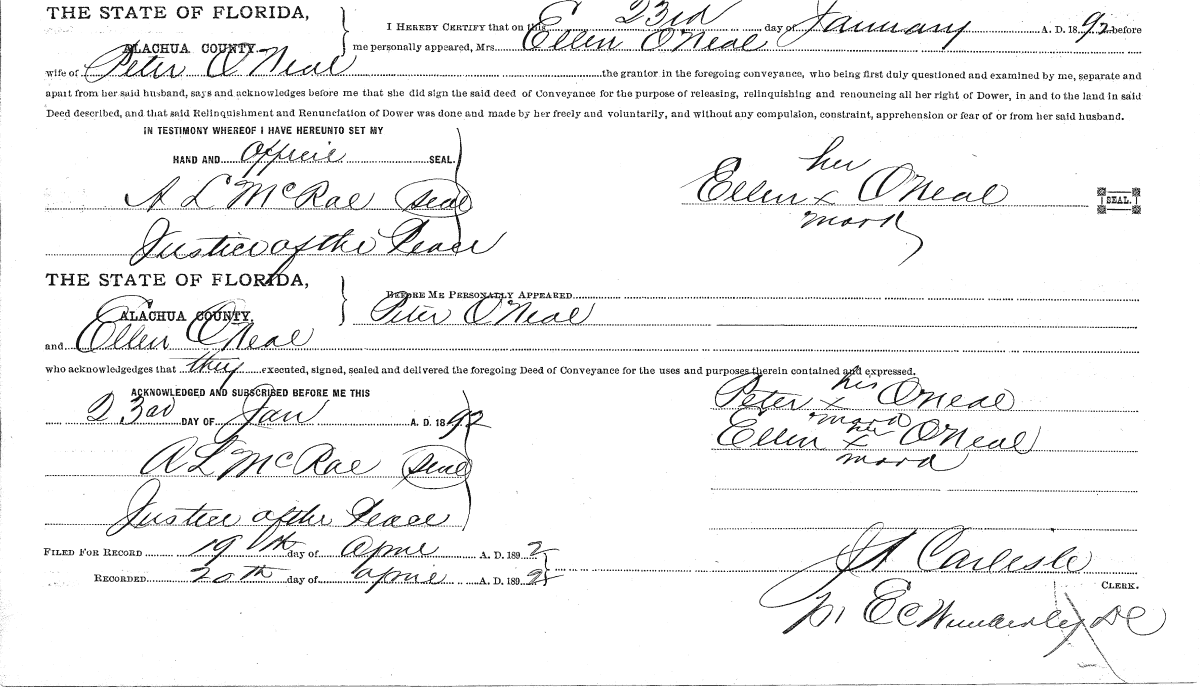 THE STATE OF FLORIDA,
ALACHUA COUNTY.
I HEREBY CERTIFY that on this 23rd day of January A. D. 1892 before
me personally appeared, Mrs. Ellen O'Neal
wife of Peter O'Neal the grantor in the foregoing conveyance, who being first duly questioned and examined by me, separate and
apart from her said husband, says and acknowledges before me that she did sign the said deed of Conveyance for the purpose of releasing, relinquishing and renouncing all her right of Dower, in and to the land in said
Deed described, and that said Relinquishment and Renunciation of Dower was done and made by her freely and voluntarily, and without any compulsion, constraint, apprehension or fear of or from her said husband.
IN TESTIMONY WHEREOF I HAVE HEREUNTO SET MY
HAND AND SEAL.
A L McRae Seal
Justice of the Peace
her
Ellen x O'Neal SEAL.
mark
THE STATE OF FLORIDA,
ALACHUA COUNTY,
BEFORE ME PERSONALLY APPEARED
Peter O'Neal
and Ellen O'Neal
who acknowledgedges that they executed, signed, sealed and delivered the foregoing Deed of Conveyance for the uses and purposes therein contained and expressed.
ACKNOWLEDGED AND SUBSCRIBED BEFORE ME THIS
23rd DAY OF Jan A. D. 1892
A L McRae Seal
Justice of the Peace
his
Peter x O'Neal
mark
her
Ellen x O'Neal
mark
FILED FOR RECORD 19th day of April A. D. 1892
RECORDED 20th day of April A. D. 1892
Carlisle
CLERK.
E C Wimberley DC